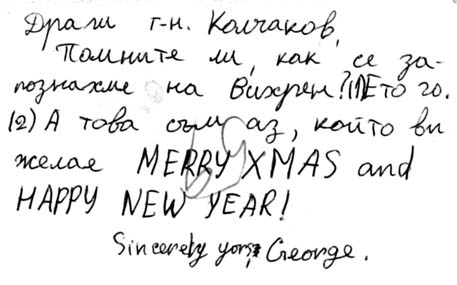 Драги г-н. Колчаков,
Помните ли, как се за-
познахме на Вихрен? (1)Ето го.
(2) А това съм аз, който ви
желая MERRY XMAS and
HAPPY NEW YEAR!
Sincerely yors, George.